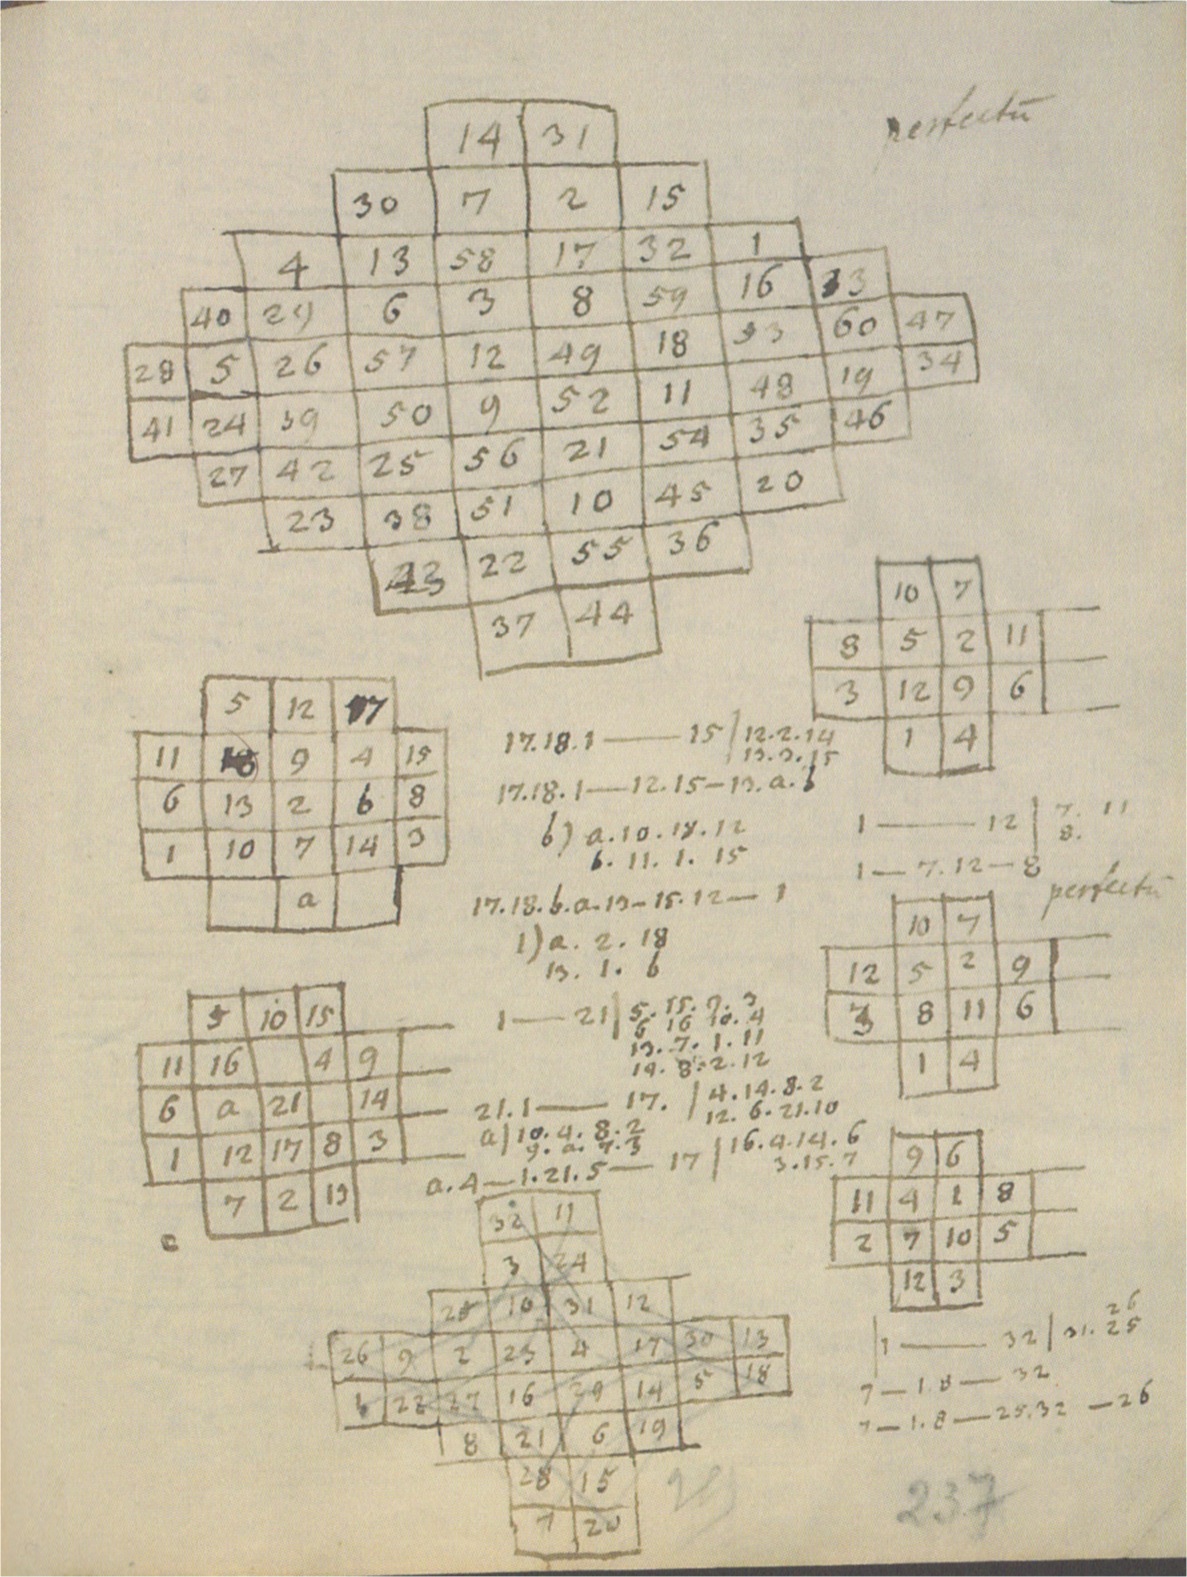 perfectū
14 31
30 7 2 15
4 13 58 17 32 1
40 29 6 3 8 59 16 33
28 5 26 57 12 49 18 53 60 47
41 24 39 50 9 52 11 48 19 34
27 42 25 56 21 54 35 46
23 38 51 10 45 20
43 22 55 36
37 44
10 7
8 5 2 11
3 12 9 6
1 4
5 12 17
11 18 9 4 15
6 13 2 6 8
1 10 7 14 3
a
17.18.1——15|12.2.14
13.3.15
17.18.1—12.15—13.a.b
b) a.10.18.12
b.11.1.15
17.18.b.a.13—15.12—1
1) a.2.18
13.1.b
1——12|7. 11
8.
1—7.12—8
perfectū
10 7
12 5 2 9
3 8 11 6
1 4
5 10 15
11 16 4 9
6 a 21 14
1 12 17 8 3
7 2 13
c
1——21|5.15.9.3
6 16 10.4
13.7.1.11
14.8.2.12
21.1——17.|4.14.8.2
12.6.21.10
a|10.4.8.2
9.a.7.3
a.4—1.21.5—17|16.4.14.6
3.15.7
9 6
11 4 1 8
2 7 10 5
12 3
32 11
3 24
25 10 31 12
26 9 2 23 4 17 30 13
1 22 27 16 29 14 5 18
8 21 6 19
28 15
7 20
1——32|31.25
26
7—1.8—32
7—1.8—25.32—26
237